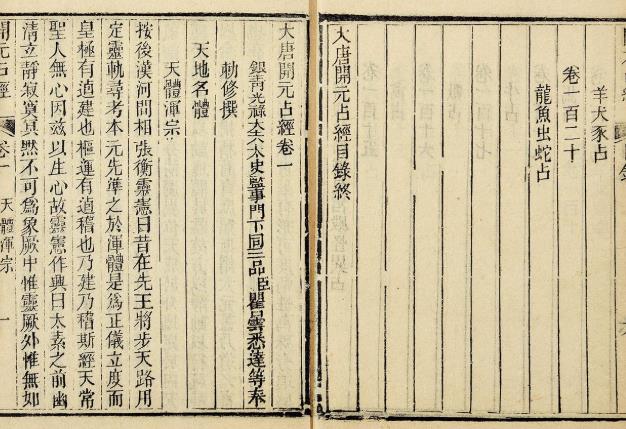 羊犬豕占
卷一百二十
龍魚虫蛇占
大唐開元占經目錄終
大唐開元占經卷一
銀青光祿大夫太史監事門下同三品臣瞿曇悉達等奉
勅修撰
天地名體
天體渾宗
按後漢河間相張衡靈憲曰昔在先王將步天路用
定靈軌尋考本元先準之於渾體是為正儀立度而
皇極有逌建也樞運有逌稽也乃建乃稽斯經天常
聖人無心因茲以生心故靈憲作興曰太素之前幽
清立靜寂寞冥黙不可為象厥中惟靈厥外惟無如
開元占經 卷一 天體渾宗 一